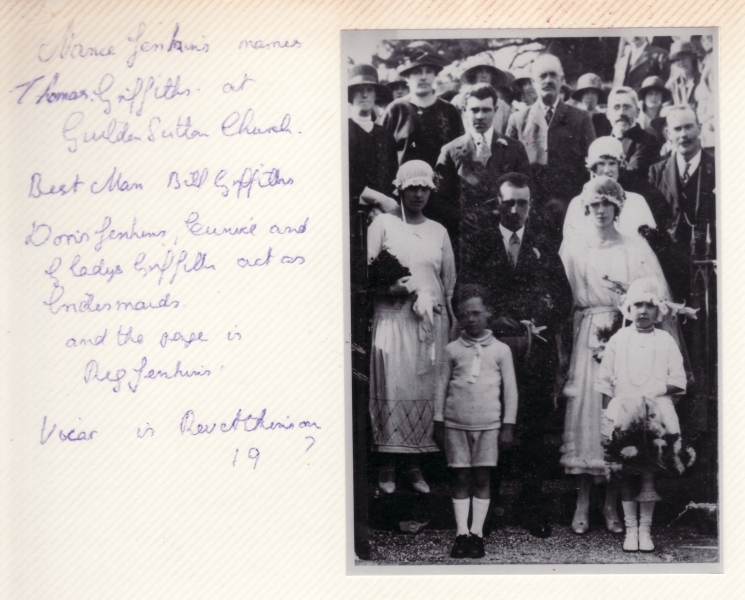 Nance Jenkins marries
Thomas Griffiths at
Guilden Sutton Church.
Best Man Bill Griffiths
Doris Jenkins, Eunice and
Gladys Griffiths act as
bridesmaids
and the page is
Reg Jenkins.
Vicar is Rev Atkinson
19 ?